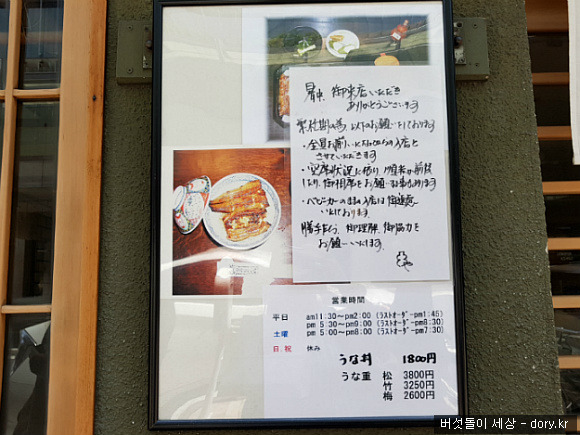 暑中、御来店いただき
ありがとうございます
繁忙期の為、以下のお願いをしております
・全員お揃いになってからの入店と
させていただきます
・空席状況に依り、順番が前後
したり、御相席をお願いする事もあります
・ベビーカーのままの入店は御遠慮
いただいております
勝手乍ら、御理解、御協力を
お願いいたします。
営業時間
平日 am11:30～pm2:00 (ラストオーダーpm1:45)
pm 5:30～pm9:00 (ラストオーダーpm8:30)
土曜 pm 5:00～pm8:00 (ラストオーダーpm7:30)
日.祝 休み
うな丼 1800円
うな重 松 3800円
竹 3250円
梅 2600円
버섯돌이 세상 - dory.kr